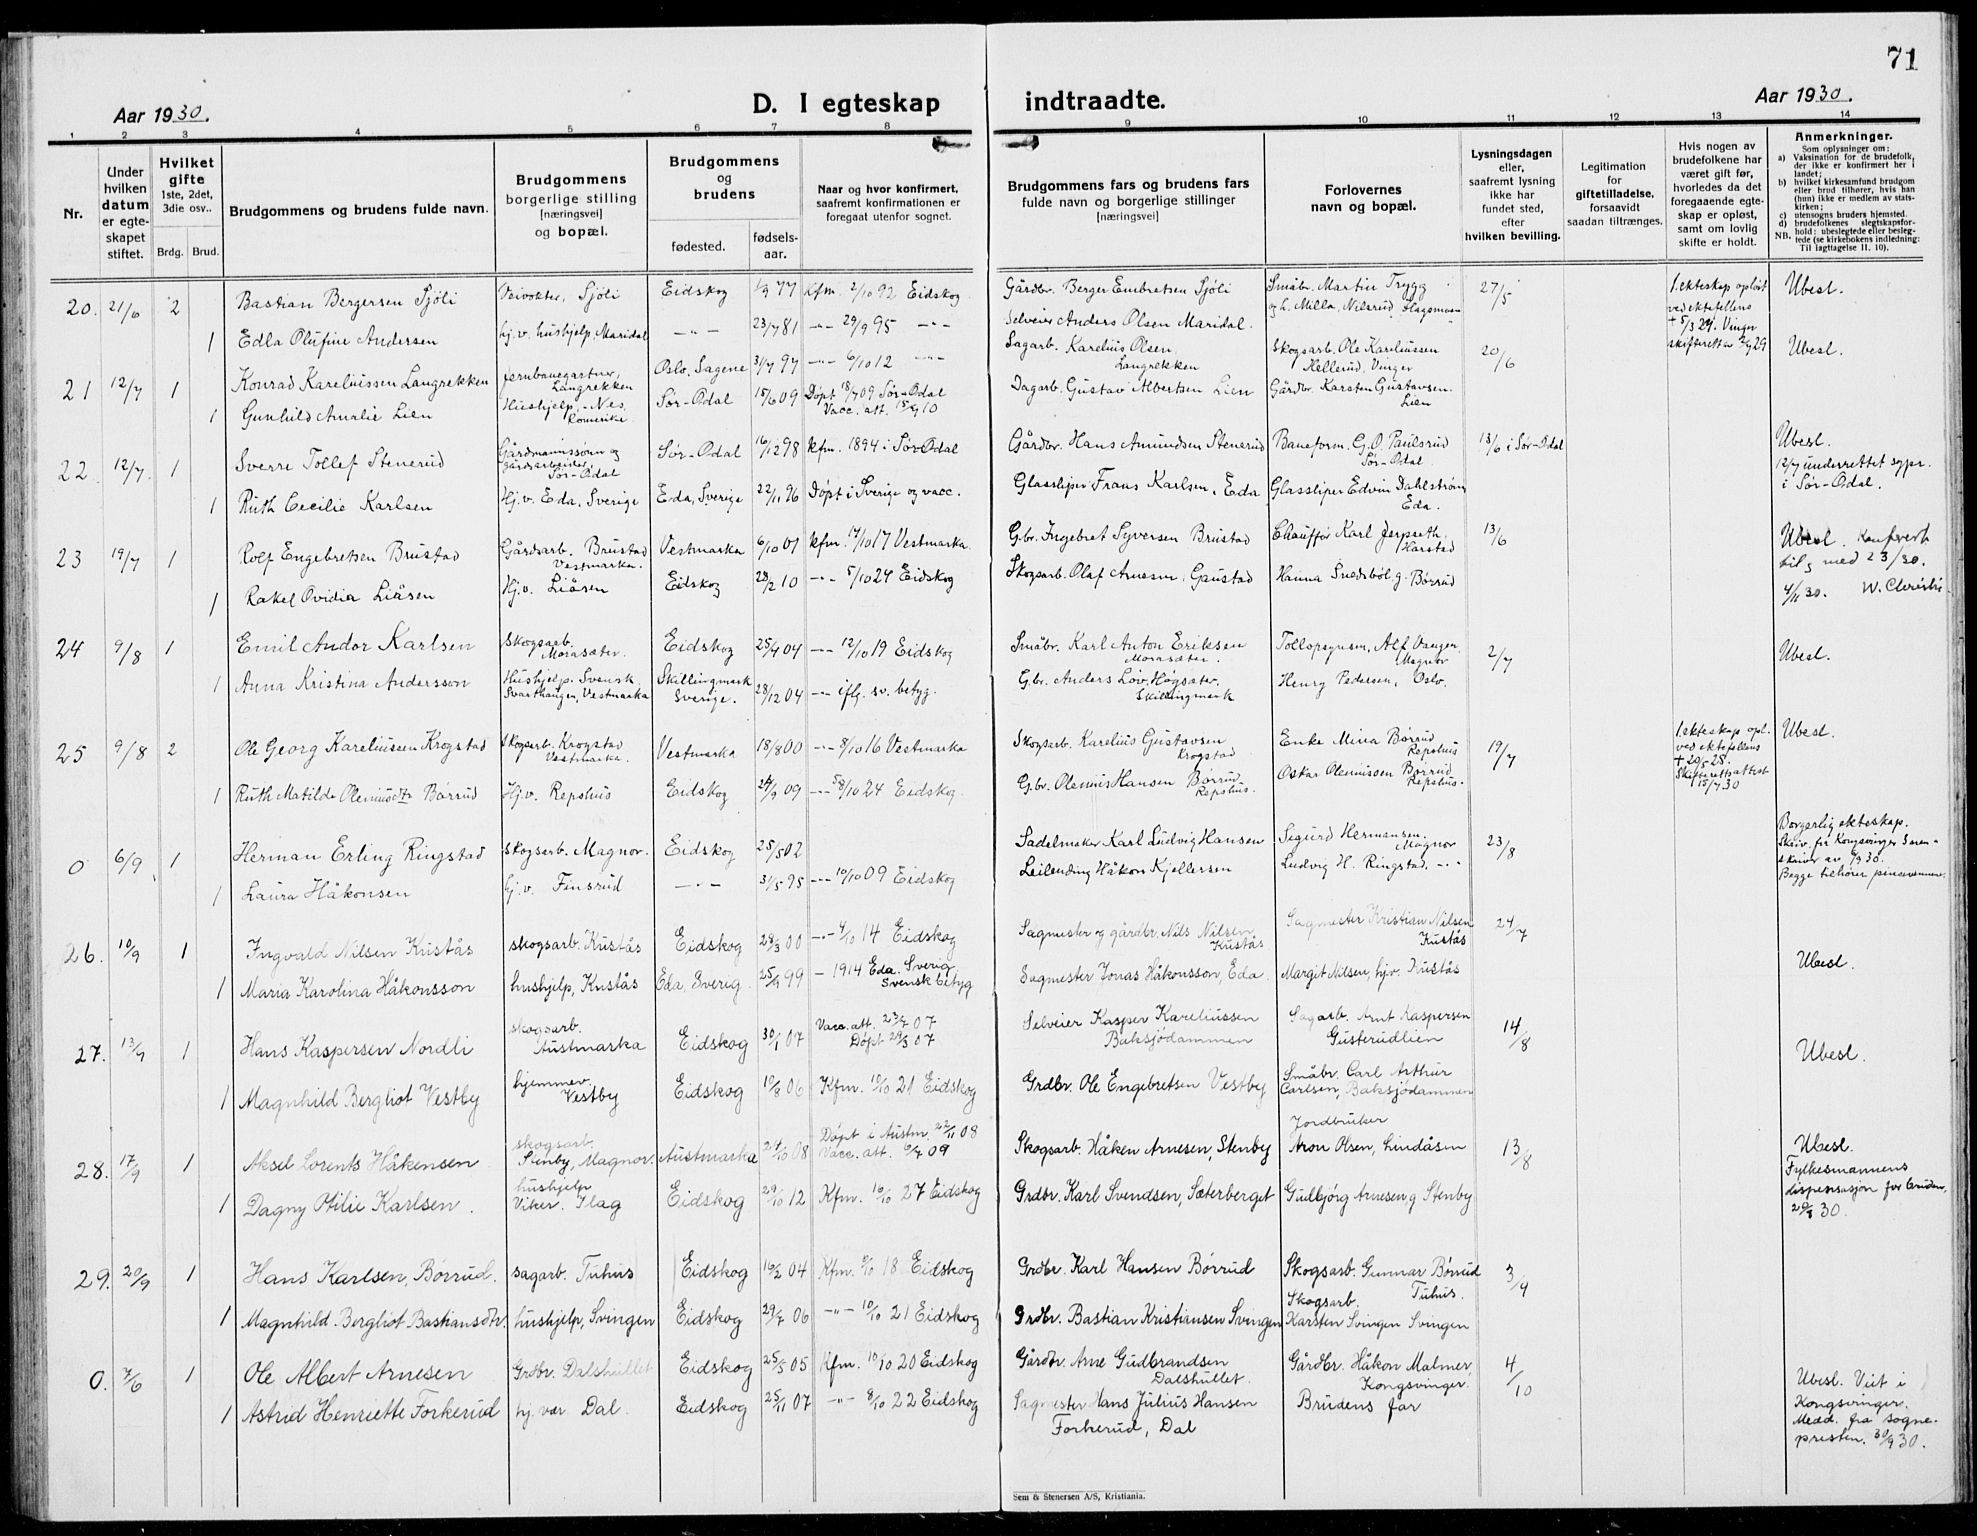 71
Aar 1930.
D. I egteskap indtraadte.
Aar 1930.
1 2 3 4 5 6 7 8 9 10 11 12 13 14
Nr.
Under hvilken datum er egteskapet stiftet.
Hvilket gifte 1ste, 2det, 3die osv..
Brdg. Brud.
Brudgommens og brudens fulde navn.
Brudgommens borgerlige stilling [næringsvei] og bopæl.
Brudgommens og brudens
fødested. fødselsaar.
Naar og hvor konfirmert, saafremt konfirmationen er foregaat utenfor sognet.
Brudgommens fars og brudens fars fulde navn og borgerlige stillinger [næringsvei]
Forlovernes navn og bopæl.
Lysningsdagen eller, saafremt lysning ikke har fundet sted, efter hvilken bevilling.
Legitimation for giftetilladelse, forsaavidt saadan tiltrænges.
Hvis nogen av brudefolkene har været gift før, hvorledes da det foregaaende egteskap er opløst, samt om lovlig skifte er holdt.
Anmerkninger.
Som oplysninger om:
a) Vaksination for de brudefolk, der ikke er konfirmert her i landet;
b) hvilket kirkesamfund brudgom eller brud tilhører, hvis han (hun) ikke er medlem av statskirken;
c) utensogns bruders hjemsted.
d) brudefolkenes slegtskapsforhold: ubeslegtede eller beslegtede (se kirkebokens indledning:
NB. Til iagttagelse II, 10).
20. 21/6 2 Bastian Bergersen Sjöli Veivokter, Sjöli Eidskog 1/9 77 Kfm. 2/10 92 Eidskog Gårdbr. Berger Embretsen Sjöli Småbr. Martin Trygg 27/5 1. ekteskap opløst ved ektefellens + 5/3 29. Vinger Ubesl.
1 Edla Olufine Andersen hj. v. hushjelp, Maridal -"- 23/7 81 -"- 29/9 95 -"- Selveier Anders Olsen Maridal. og h. Milla Nilsrud, Ubesl.
21 12/7 1 Konrad Kareliussen Langrekken Jernbanegartner, Langrekken Oslo, Sagene 31/7 97 -"- 6/10 12 -"- Sagarb. Karelius Olsen, Langrekken Skogsarb. Ole Kareliussen Hellerud, Vinger 20/6
1 Gunhild Amalie Lien Hushjelp, Nes, Romerike. Sør-Odal 15/6 09 Døpt 18/7 09 Sør-Odal Vacc. att. 15/9 10 Dagarb. Gustav Albertsen Lien Gårdbr. Karsten Gustavsen Lien
22 12/7 1 Sverre Tollef Stenerud Gårdmannssønn og gårdsarbeider, Sør-Odal Sør-Odal 16/12 98 kfm. 1894 i Sør Odal Gårdbr. Hans Amundsen Stenerud Baneform. G. O. Paulsrud Sør-Odal 13/6 i Sør-Odal Ubesl. 12/7 underrettet sogpr. i Sør-Odal.
1 Ruth Cecilie Karlsen Hj. v. Eda, Sverige Eda, Sverige 22/11 96 Døpt i Sverige og vacc. Glassliper Frans Karlsen, Eda Glassliper Edvin Dahlström Eda.
23 19/7 1 Rolf Engebretsen Brustad Gårdsarb. Brustad Vestmarka. Vestmarka 6/10 01 kfm. 7/10 17 Vestmarka. G.br. Ingebret Syversen Brustad Chauffør Karl Jerpseth, Harstad 13/6 Ubesl.
1 Rakel Ovidia Liåsen Hj. v. Liåsen Eidskog 28/2 10 -"- 5/10 24 Eidskog Skogsarb. Olaf Arnesen, Gaustad Hanna Snedsböl g. Børrud 4/11 30.
24 9/8 1 Emil Andor Karlsen Skogsarb. Morasæter. Eidskog 25/4 04 -"- 12/10 19 Eidskog Småbr. Karl Anton Eriksen Morasæter. Alf Vangen Magnor 2/7 Ubesl.
1 Anna Kristina Andersson Hushjelp. Svensk. Svarthaugen, Vestmarka Skillingmark Sverige. 28/12 04 -"- iflg. sv. betyg. G.br. Anders Löv, Högsæter, Skillingmark Henry Pedersen, Oslo.
25 9/8 2 Ole Georg Kareliussen Krogstad Skogsarb. Krogstad Vestmarka. Vestmarka 18/8 00 -"- 8/10 16 Vestmarka Skogsarb. Karelius Gustavsen Krogstad Enke Mina Børrud Repshus 19/7 1. ekteskap opl. ved ektefellens + 20/5 28. Skifterettsattest 15/7 30 Ubesl.
1 Ruth Matilde Olemusdtr Børrud Hj. v. Repshus Eidskog 24/9 09 -"- 5/10 24 Eidskog. G.br. Olemus Hansen Børrud Repshus. Oskar Olemussen Børrud Repshus.
0 6/9 1 Herman Erling Ringstad Skogsarb. Magnor. Eidskog 25/5 02 Sadelmaker Karl Ludvig Hansen Sigurd Hermansen, Magnor 23/8 Borgerlig ekteskap. Skriv. fra Kongsvinger Sorenskriver
1 Laura Håkonsen hj. v. Finsrud -"- 31/5 95 -"- 10/10 09 Eidskog Leilending Håkon Kjellersen Ludvig H. Ringstad. -"- Begge tilhører pinsevennene.
26. 10/9 1 Ingvald Nilsen Kustås skogsarb. Kustås Eidskog 28/3 00 -"- 4/10 14 Eidskog Sagmester og gårdbr. Nils Nilsen Kustås Sagmester Kristian Nilsen Kustås 24/7 Ubesl.
1 Maria Karolina Håkonsson hushjelp, Kustås Eda, Sverig. 25/9 99 - 1914 Eda. Sverig Svensk betyg Sagmester Jonas Håkonsson, Eda. Margit Nilsen, hjv. Kustås
27. 13/9 1 Hans Kaspersen Nordli skogsarb. Austmarka Eidskog 30/1 07 Vacc. att. 23/7 07 Døpt 29/3 07 Selveier Kasper Kareliussen Baksjödammen Sagarb. Arnt Kaspersen Gusterudlien 14/8 Ubesl.
1 Magnhild Bergliot Vestby hjemmev. Vestby Eidskog 10/8 06 Kfm. 10/10 21 Eidskog Grdbr. Ole Engebretsen Vestby Småbr. Carl Arthur Carlsen, Baksjödammen
28. 17/9 1 Aksel Lorents Håkensen skogsarb. Stenby, Magnor. Austmarka 24/10 08 Døpt i Austm. 22/11 08 Vacc. att. 6/7 09 Skogsarb. Håken Arnesen, Stenby Jordbruker Aron Olsen, Lindåsen 13/8 Ubesl. Fylkesmannens dispensasjon for bruden, 29/8 30.
1 Dagny Otilie Karlsen. hushjelp Viker. Flag Eidskog 29/10 12 Kfm. 10/10 27 Eidskog Grdbr. Karl Svendsen, Sæterberget Gulbjörg Arnesen g Stenby
29. 20/9 1 Hans Karlsen, Børrud. sagarb. Tuhus Eidskog 10/2 04 Kfm. 6/10 18 Eidskog Grdbr. Karl Hansen Børrud Skogsarb. Gunnar Børrud Tuhus. 3/9
1 Magnhild Bergliot Bastiansdtr. hushjelp, Svingen Eidskog 29/7 06 -"- 10/10 21 Eidskog Grdbr. Bastian Kristiansen Svingen Skogsarb. Karsten Svingen Svingen
0. 7/6 1 Ole Albert Arnesen Grdbr. Dalshullet Eidskog 25/5 05 Kfm. 10/10 20 Eidskog Gårdbr. Arne Gudbrandsen Dalshullet. Gårdbr. Håkon Malmer, Kongsvinger. 4/10 Ubesl. Viet i Kongsvinger. Medd. fra sognepresten. 30/9 30.
1 Astrid Henriette Forkerud hj. vær. Dal. Eidskog 25/11 07 -"- 8/10 22 Eidskog Sagmester Hans Julius Hansen Forkerud, Dal Brudens far
Sem & Stenersen A/S, Kristiania.